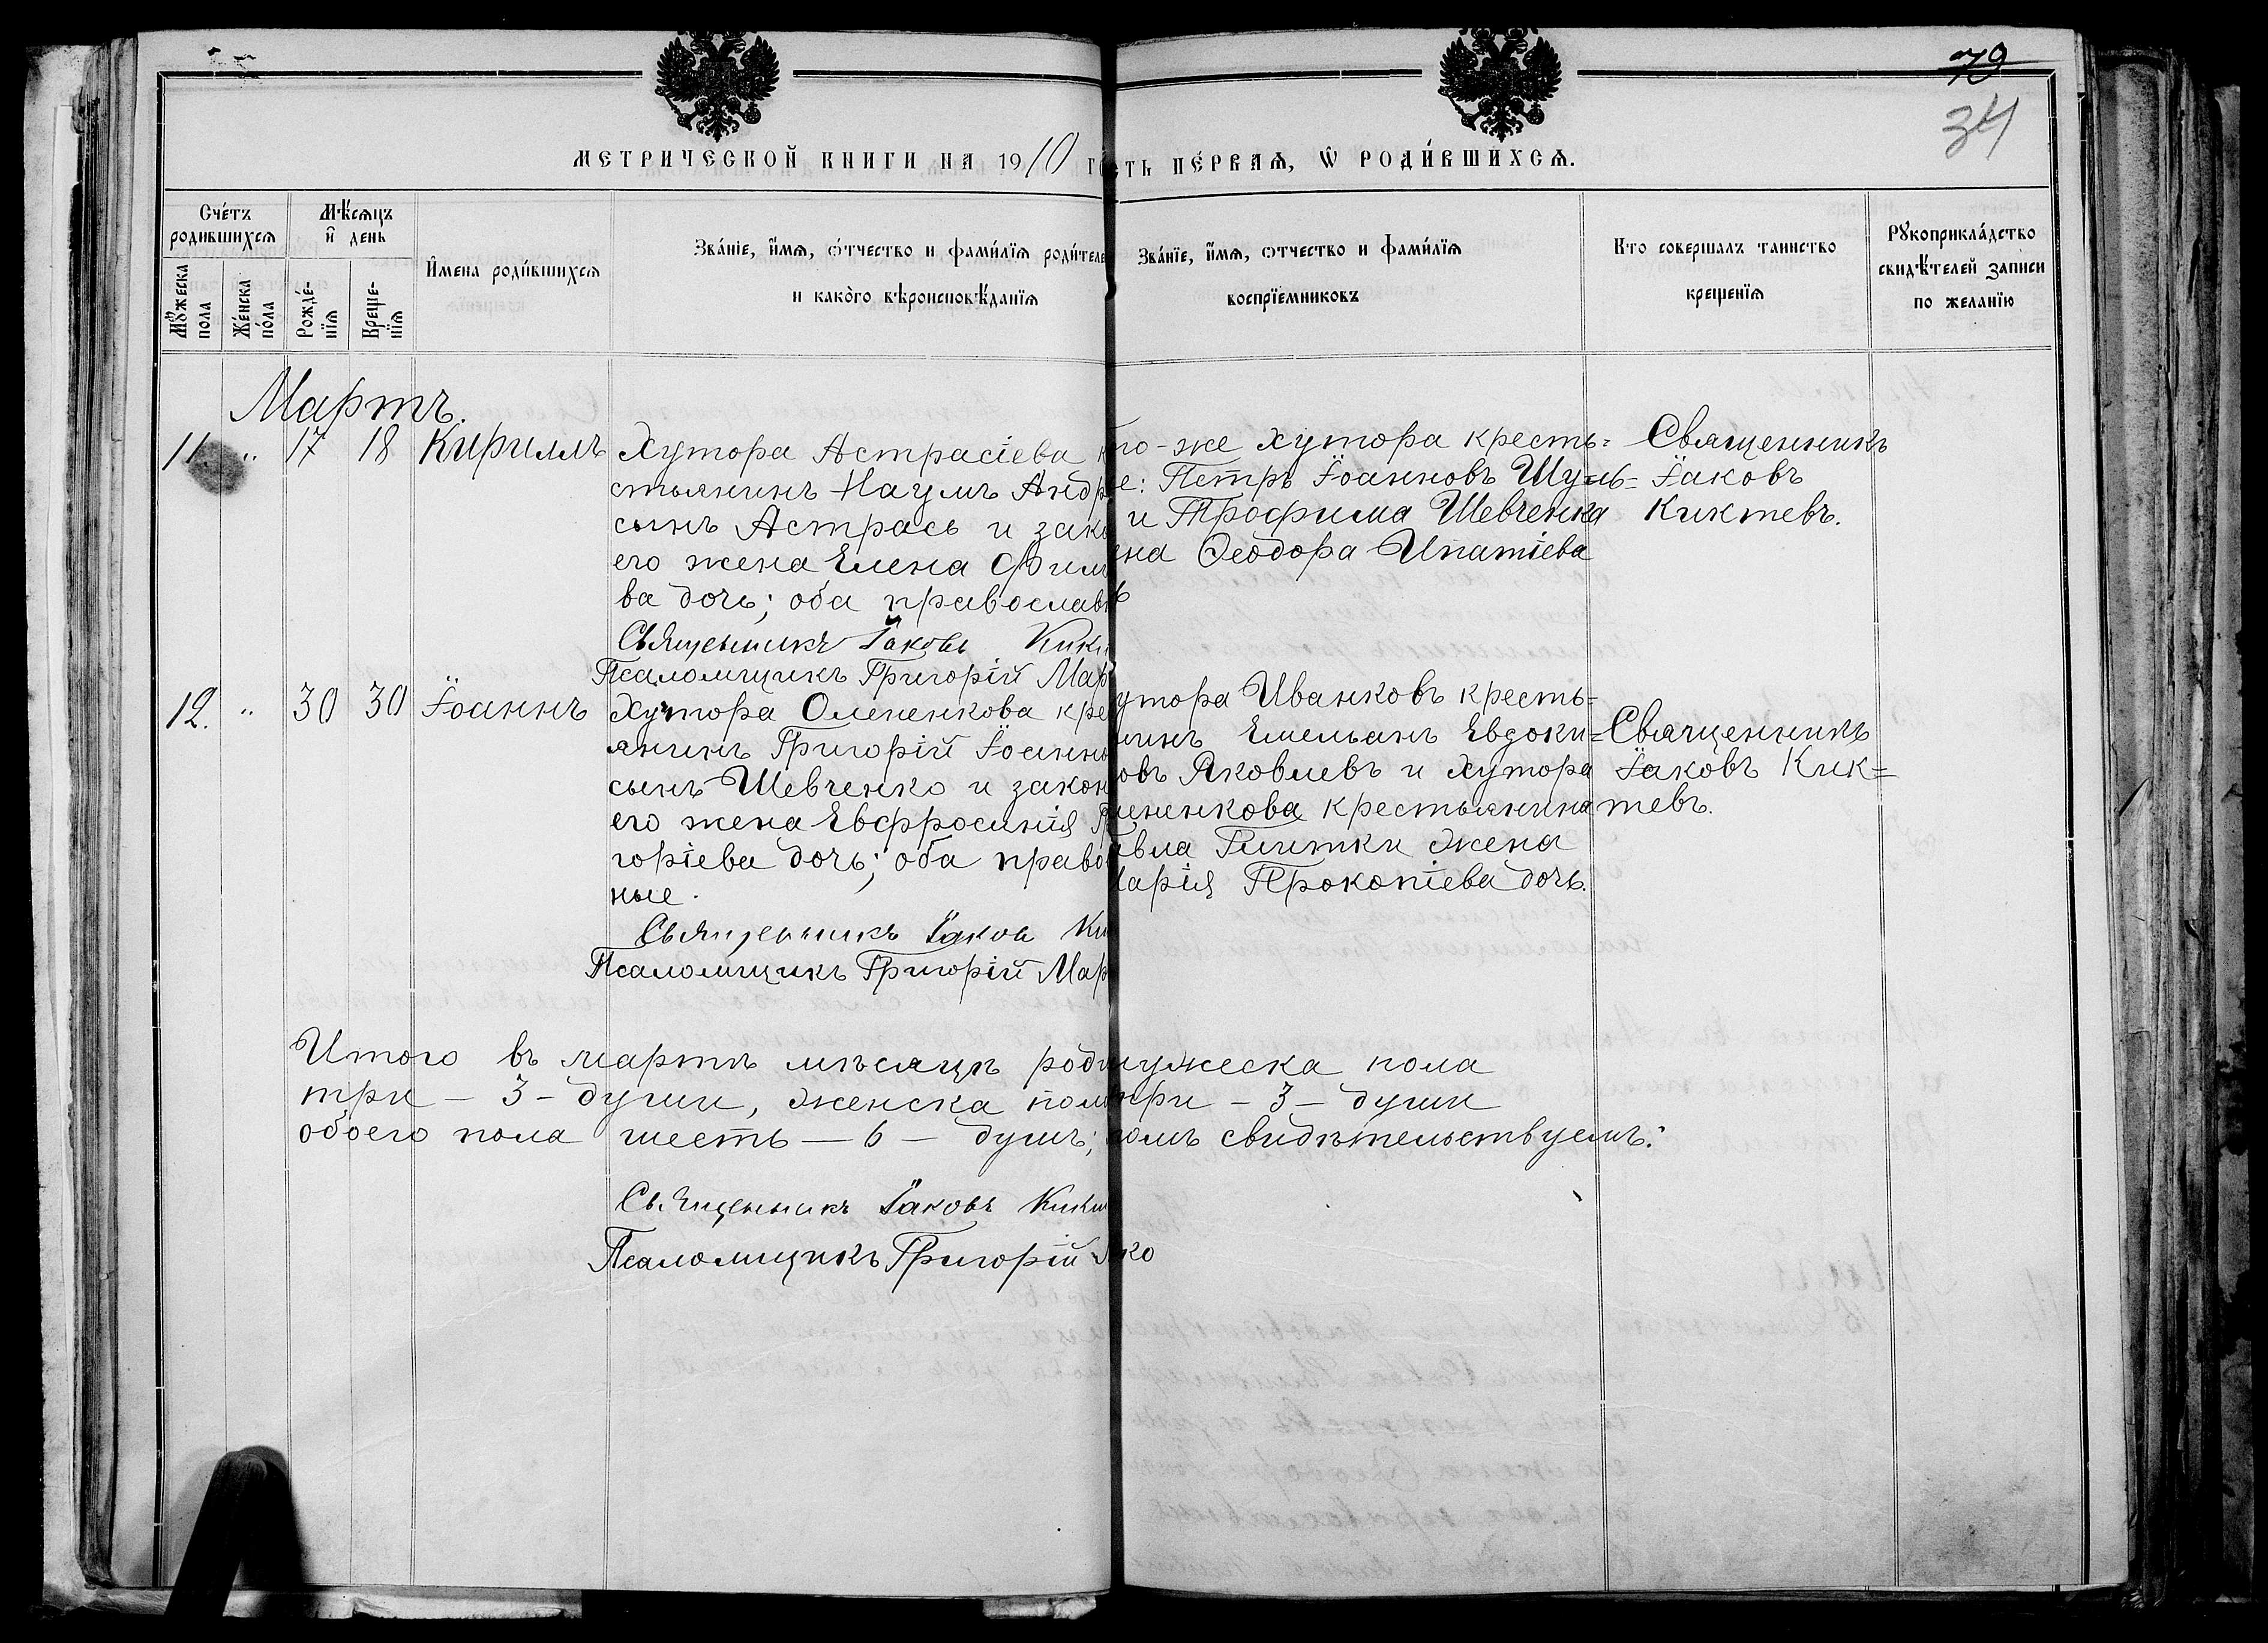 79
34
МЕТРИЧЕСКОЙ КНИГИ НА 1910
сть пе́рваѧ, Ѡ роди́вшихсѧ.
Сче́тъ родившихсѧ
Мѣ́сѧцъ и҆ день
Мꙋ́жеска пола
Же́нска по́ла
Рожде́-нїѧ
Креще-нїѧ
И҆мена роди́вшихсѧ
Зва́нїе, и҆́мѧ, ѻ҆́тчество и фами́лїѧ родителе
и како́го вѣроисповѣ́данїѧ
Зва́нїе, и҆́мѧ, ѻтчество и фами́лїѧ
воспрїемниковъ
Кто совершалъ таинство
крещенїѧ
Рꙋкоприкла́дство
свидѣ́телей записи
по желанїю
Мартъ.
11. " 17 18 Кириллъ
Хутора Астрасіева к
стьянинъ Наумъ Андр
сынъ Астрась и зако
его жена Елена Фил
ва дочь; оба православн
Священникъ Іаковъ Кик
Псаломщикъ Григорій Мар
го-же хутора кресть=
е: Петръ Іоанновъ Шуль=
и Трофима Шевченка
ена Ѳеодора Ипатіева
Священникъ
Іаковъ
Киктевъ.
12. " 30 30 Іоаннъ
Хутора Олененкова кре
янинъ Григорій Іоанно
сынъ Шевченко и закон
его жена Евфросинія Г
горіева дочь; оба право
ные.
Священникъ Іаковъ Ки
Псаломщикъ Григорій Мар
утора Иванковъ кресть=
нинъ Емельянъ Евдоки=
овъ Яковлевъ и хутора
лененкова крестьянина
авла Плитки жена
Марія Прокопіева дочь.
Священникъ
Іаковъ Кик=
тевъ.
Итого въ мартѣ мѣсяцѣ род
мужеска пола
три - 3 - души, женска пол
три - 3 - души
обоего пола шесть - 6 - душъ;
омъ свидѣтельствуемъ:
Священникъ Іаковъ Кик
Псаломщикъ Григорій
ко